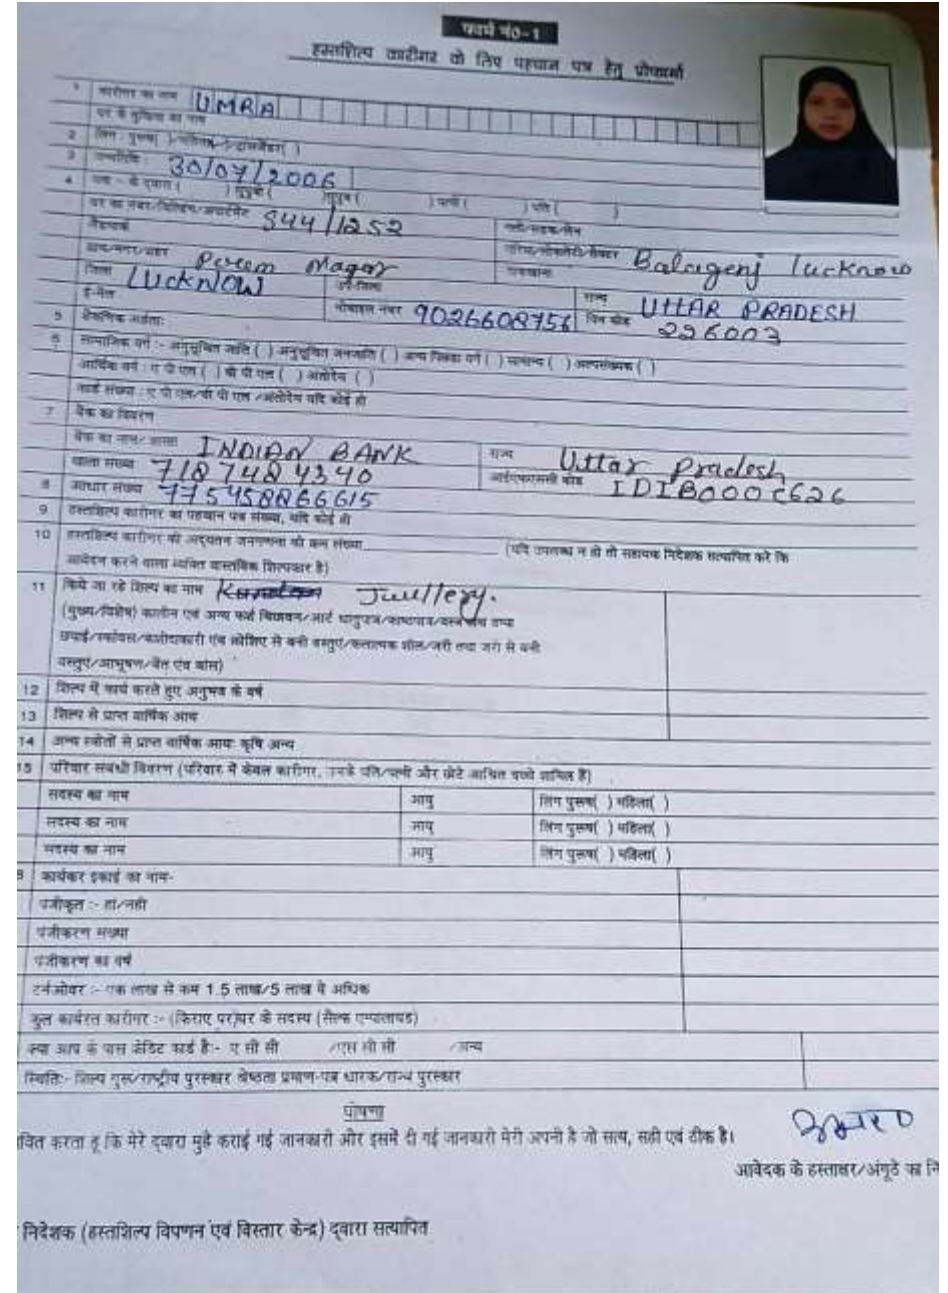 फार्म नं0-1
हस्तशिल्प कारीगर के लिए पहचान पत्र हेतु प्रोफार्मा
1 कारीगर का नाम UMRA
घर के मुखिया का नाम
2 लिंग : पुरूष( ) महिला( ) ट्रांसजेंडर( )
3 जन्मतिथि : 30/07/2006
4 पता - के द्वारा ( ) सुपुत्री ( ) सुपुत्र ( ) पत्नी ( ) पति ( )
घर का नंबर/बिल्डिंग/अपार्टमेंट 544/1252 गली/सड़क/लेन
लैंडमार्क एरिया/लोकेलिटी/सैक्टर Balagenj lucknow
ग्राम/नगर/शहर Preem Nagar डाकखाना
जिला LUCKNOW उप-जिला राज्य UTTAR PRADESH
ई-मेल मोबाइल नंबर 9026608756 पिन कोड 226003
5 शैक्षणिक अर्हता:
6 सामाजिक वर्ग :- अनुसूचित जाति ( ) अनुसूचित जनजाति ( ) अन्य पिछडा वर्ग ( ) सामान्य ( ) अल्पसंख्यक ( )
आर्थिक वर्ग : ए पी एल ( ) बी पी एल ( ) अंतोदय ( )
कार्ड संख्या : ए पी एल/बी पी एल/अंतोदेय यदि कोई हो
7 बैंक का विवरण
बैंक का नाम/शाखा INDIAN BANK राज्य Uttar Pradesh
खाता संख्या 7187484340 आईएफएससी कोड IDIB000C626
8 आधार संख्या 775458866615
9 हस्तशिल्प कारीगर का पहचान पत्र संख्या, यदि कोई हो
10 हस्तशिल्प कारीगर की अद्यतन जनगणना की क्रम संख्या (यदि उपलब्ध न हो तो सहायक निदेशक सत्यापित करे कि
आवेदन करने वाला व्यक्ति वास्तविक शिल्पकार है)
11 किये जा रहे शिल्प का नाम Juullery.
(मुख्य/विशेष) कालीन एवं अन्य फर्श बिछावन/आर्ट धातुपात्र/काष्ठपात्र/वस्त्र हाथ ठप्पा
छपाई/स्कॉवस/कशीदाकारी एंव क्रोशिए से बनी वस्तुएं/कलात्मक शॉल/जरी तथा जरी से बनी
वस्तुएं/आभूषण/बेंत एंव बांस)
12 शिल्प में कार्य करते हुए अनुभव के वर्ष
13 शिल्प से प्राप्त वार्षिक आय
14 अन्य स्त्रोतों से प्राप्त वार्षिक आयः कृषि अन्य
5 परिवार संबंधी विवरण (परिवार में केवल कारीगर, उनके पति/पत्नी और छोटे आश्रित बच्चे शामिल हैं)
सदस्य का नाम आयु लिंग पुरूष( ) महिला( )
सदस्य का नाम आयु लिंग पुरूष( ) महिला( )
सदस्य का नाम आयु लिंग पुरूष( ) महिला( )
कार्यकर इकाई का नाम-
पंजीकृत :- हां/नही
पंजीकरण संख्या
पंजीकरण का वर्ष
टर्नओवर :- एक लाख से कम 1.5 लाख/5 लाख से अधिक
कुल कार्यरत कारीगर :- (किराए पर)घर के सदस्य (सैल्फ एम्पलायड)
क्या आप के पास क्रेडिट कार्ड है:- ए सी सी /एस सी सी /अन्य
स्थिति:- शिल्प गुरू/राष्ट्रीय पुरस्कार श्रेष्ठता प्रमाण-पत्र धारक/राज्य पुरस्कार
घोषणा
वित करता हू कि मेरे द्वारा मुहै कराई गई जानकारी और इसमें दी गई जानकारी मेरी अपनी है जो सत्य, सही एवं ठीक है।
आवेदक के हस्ताक्षर/अंगूठे का नि
निदेशक (हस्तशिल्प विपणन एवं विस्तार केन्द्र) द्वारा सत्यापित